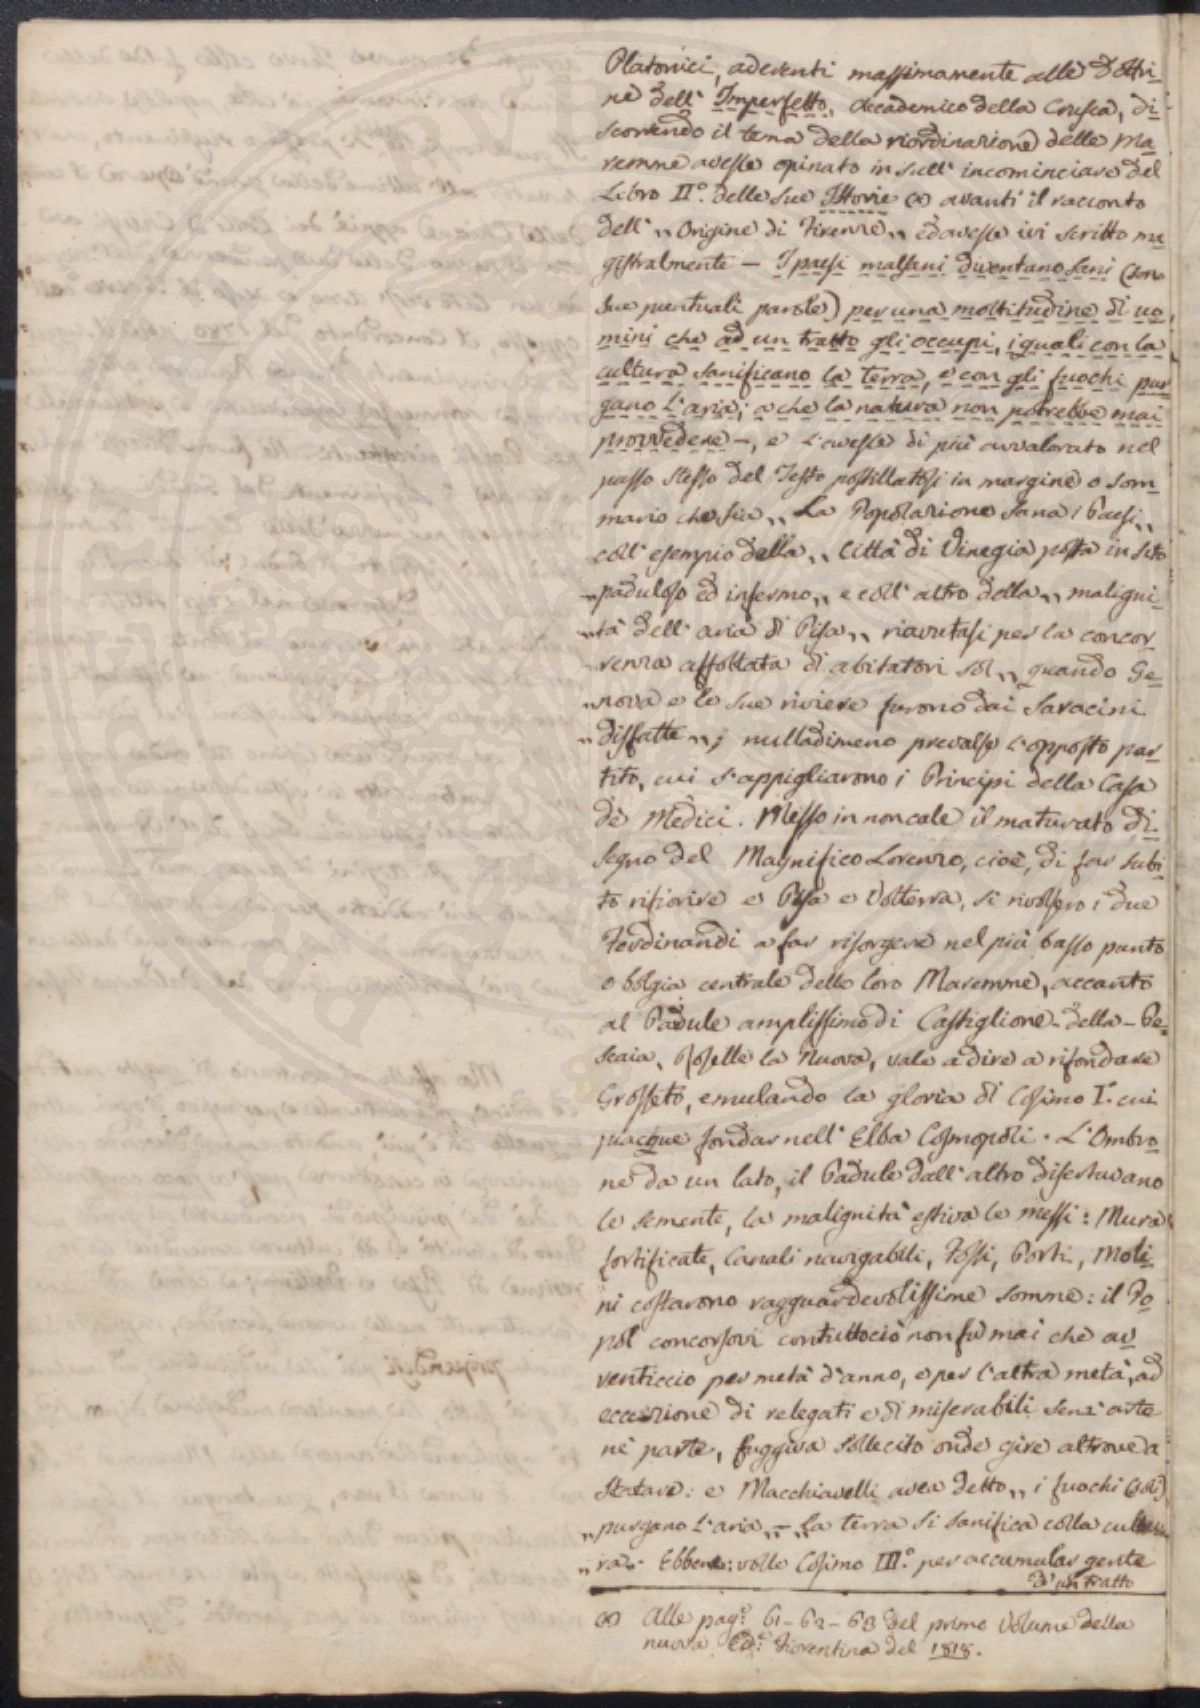 Platonici, aderenti massimamente alle Dottri-
ne dell' Imperfetto, Accademico della Crusca, di-
scorrendo il tema della riordinazione delle Ma
remme avesse opinato in sull' incominciare del
Libro II.º delle sue Istorie (a) avanti il racconto
dell' „ Origine di Firenze „ ed avesse ivi scritto ma
gistralmente — I paesi malsani diventano sani (son
sue puntuali parole) per una moltitudine di uo
mini che ad un tratto gli occupi, i quali con la
cultura sanificano la terra, e con gli fuochi pur
gano l'aria; a che la natura non potrebbe mai
provvedere —, e l'avesse di più avvalorato nel
passo stesso del Testo postillatosi in margine o som
mario che sia „ La Popolazione sana i Paesi „
coll' esempio della „ Città di Vinegia posta in sito
„ paduloso ed infermo „ e coll' altro della „ maligni-
„ tà dell' aria di Pisa „ riavutasi per la concor
renza affollata di abitatori sol „ quando Ge-
„ nova e le sue riviere furono dai Saracini
„ disfatte „ ; nulladimeno prevalse l'opposto par
tito, cui s'appigliarono i Principi della Casa
de Medici. Messo in noncale il maturato di-
segno del Magnifico Lorenzo, cioè, di far subi-
to rifiorire e Pisa e Volterra, si rivolsero i due
Ferdinandi a far risorgere nel più basso punto
o bolgia centrale delle loro Maremme, accanto
al Padule amplissimo di Castiglione-della-Pe-
scaia, Roselle la Nuova, vale a dire a rifondare
Grosseto, emulando la gloria di Cosimo I.º cui
piacque fondar nell' Elba Cosmopoli. L'Ombro
ne da un lato, il Padule dall' altro disertavano
le semente, la malignità estiva le messi: Mura
fortificate, Canali navigabili, Fossi, Ponti, Moli-
ni costarono ragguardevolissime somme: il Po
pol concorsovi contuttociò non fù mai che av
venticcio per metà d'anno, e per l'altra metà, ad
eccezione di relegati e di miserabili senz' arte
nè parte, fuggiva sollecito onde gire altrove a
statare: e Macchiavelli avea detto „ i fuochi (soli)
„ purgano l'aria — „ la terra si sanifica colla cultu
„ ra. Ebbene: volle Cosimo III.º per accumular gente
d'un tratto
(a) Alle pag.e 61-62-63 del primo Volume della
nuova Ed.e Fiorentina del 1818.